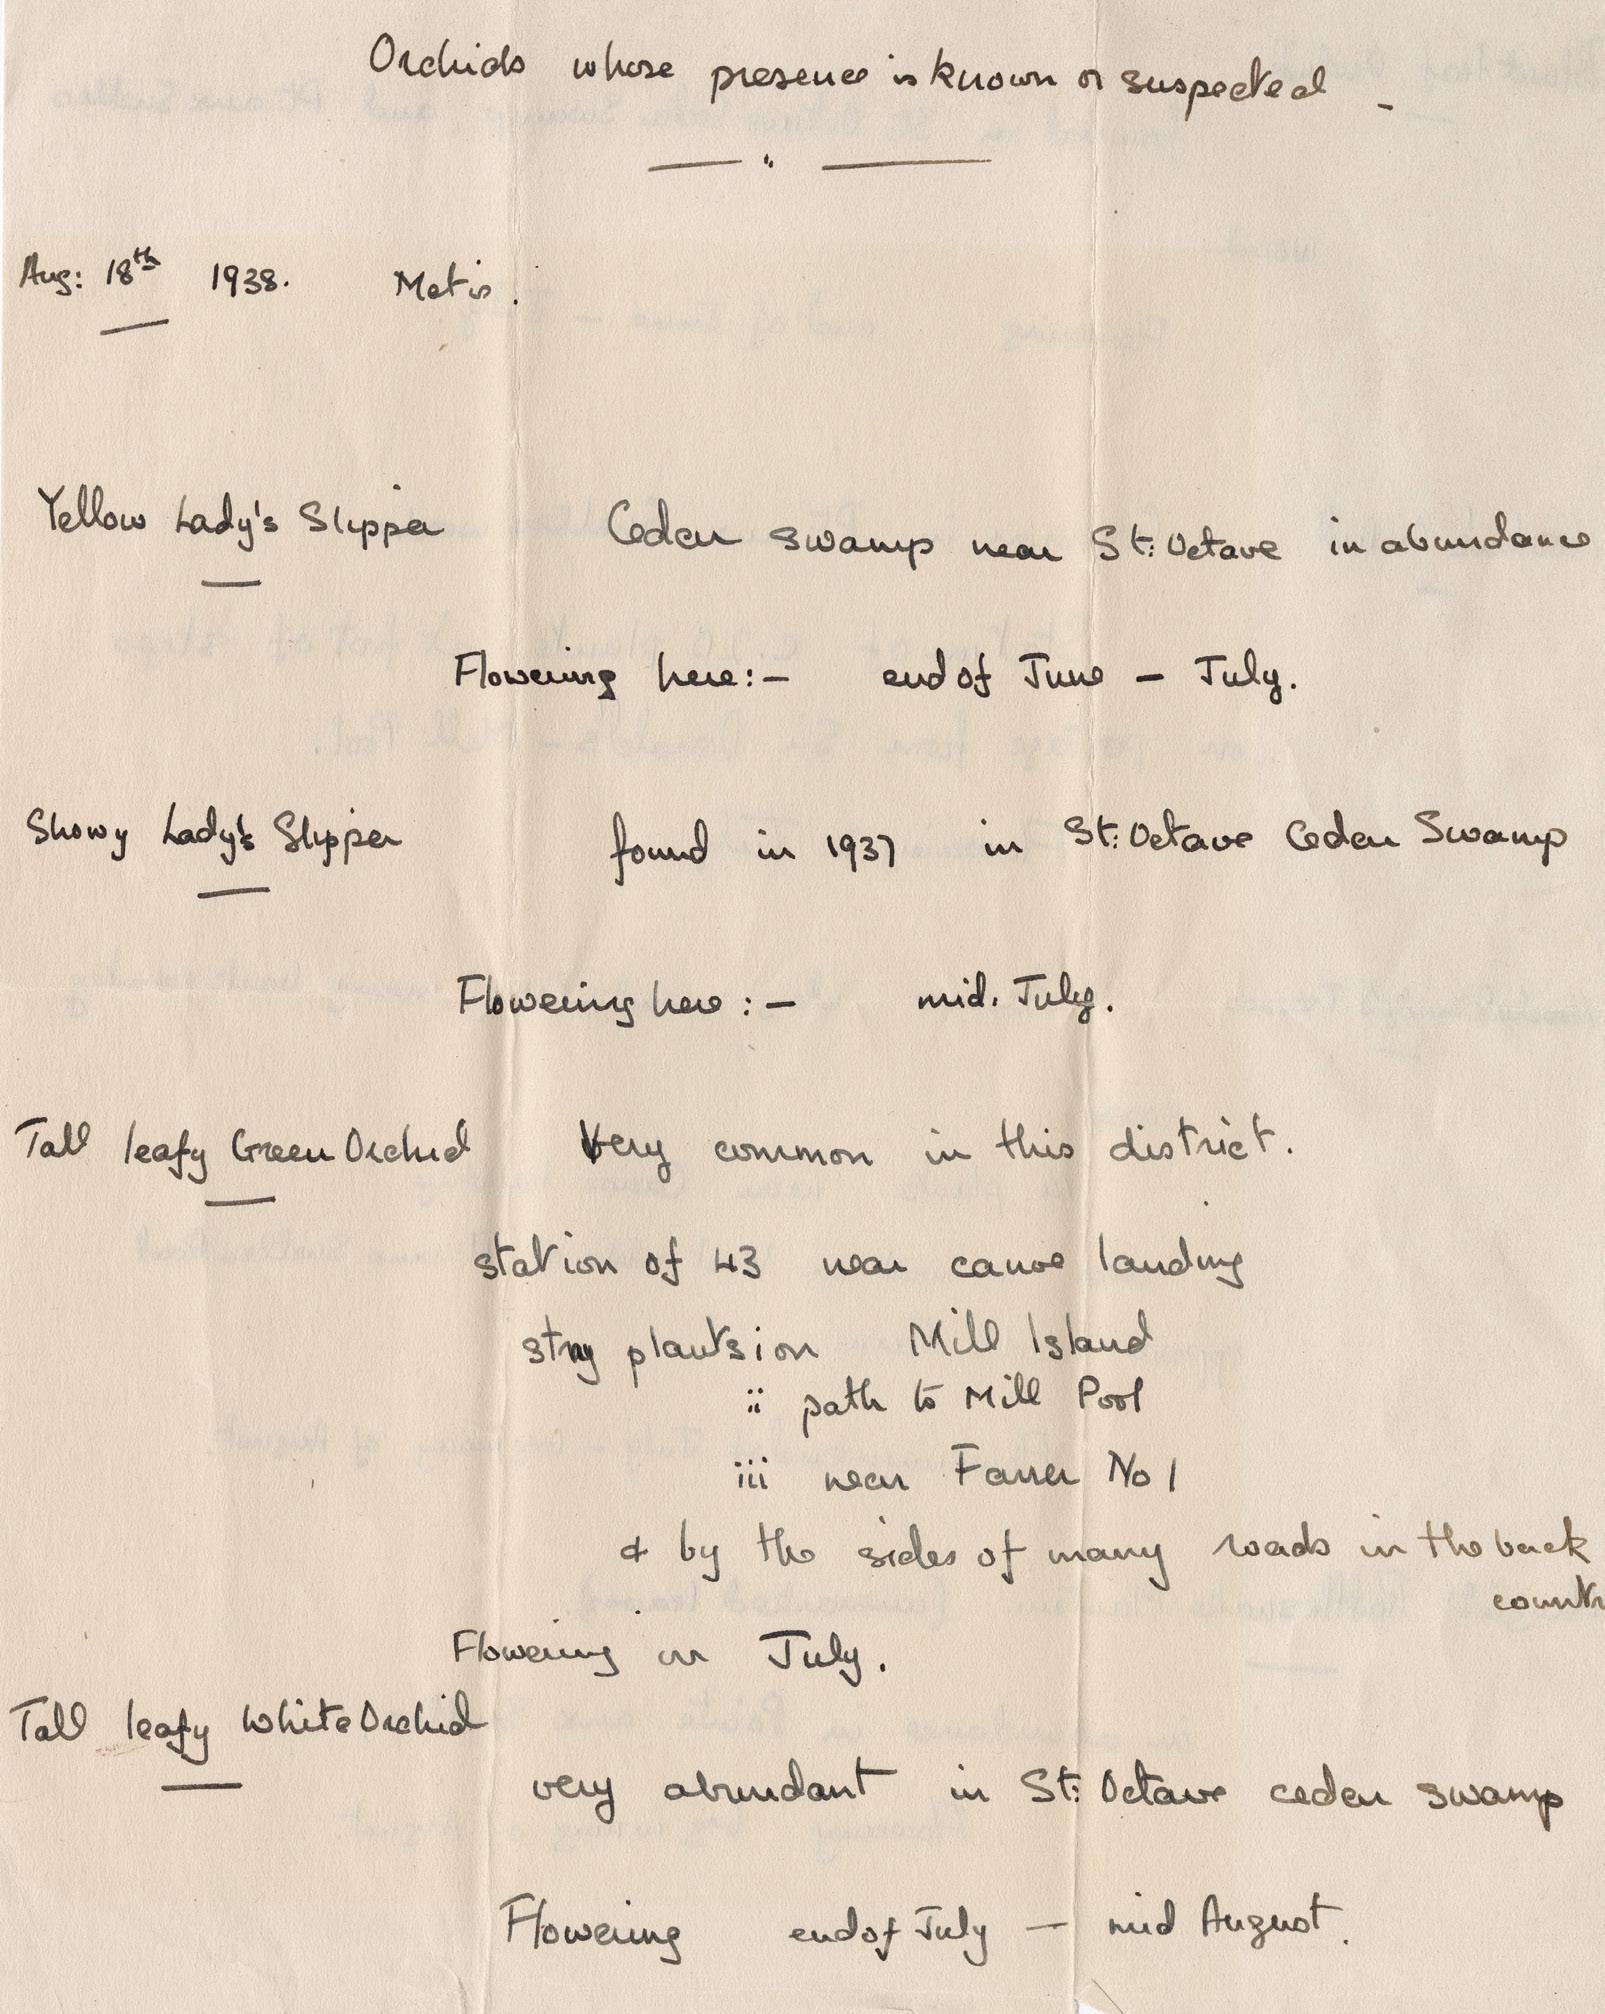 Orchids whose presence is known or suspected -
Aug: 18th 1938. Metis.
Yellow Lady's Slipper Cedar swamp near St: Octave in abundance
Flowering here:- end of June - July.
Showy Lady's Slipper found in 1937 in St: Octave Cedar Swamp
Flowering here:- mid. July.
Tall leafy Green Orchid Very common in this district.
station of 43 near canoe landing
stray plants i on Mill Island
ii path to Mill Pool
iii near Farrer No 1
& by the sides of many roads in the back
countr
Flowering in July.
Tall leafy White Orchid
very abundant in St: Octave cedar swamp
Flowering end of July - mid August.